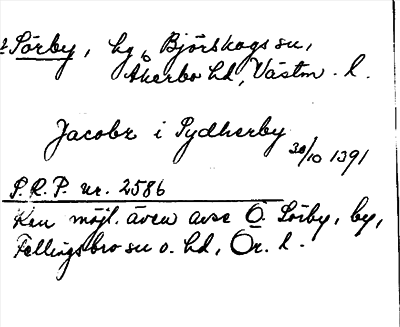 ? Sörby, hg, Björskogs sn,
Åkerbo hd, Västm. l.
Jacobr i Sydherby 30/10 1391
S.R.P. nr. 2586
Kan möjl. även avse Ö. Sörby, by,
Fellingsbro sn o. hd, Ör. l.